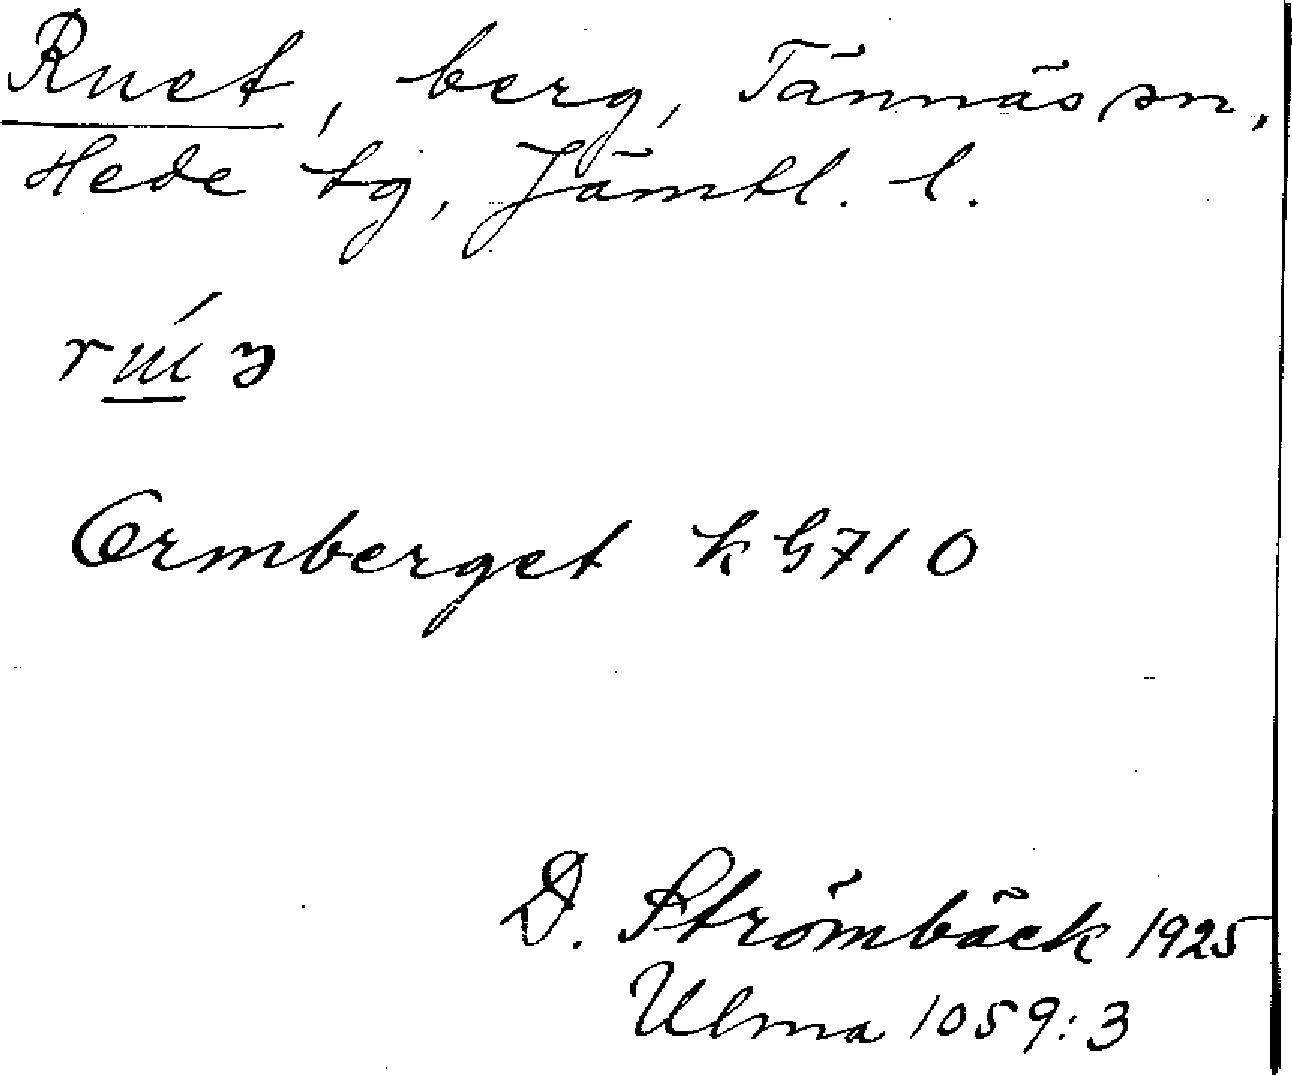 Ruet, berg, Tännäs sn,
Hede tg, Jämtl. l.
Ormberget k G710
D. Strömbäck 1925
Ulma 1059:3